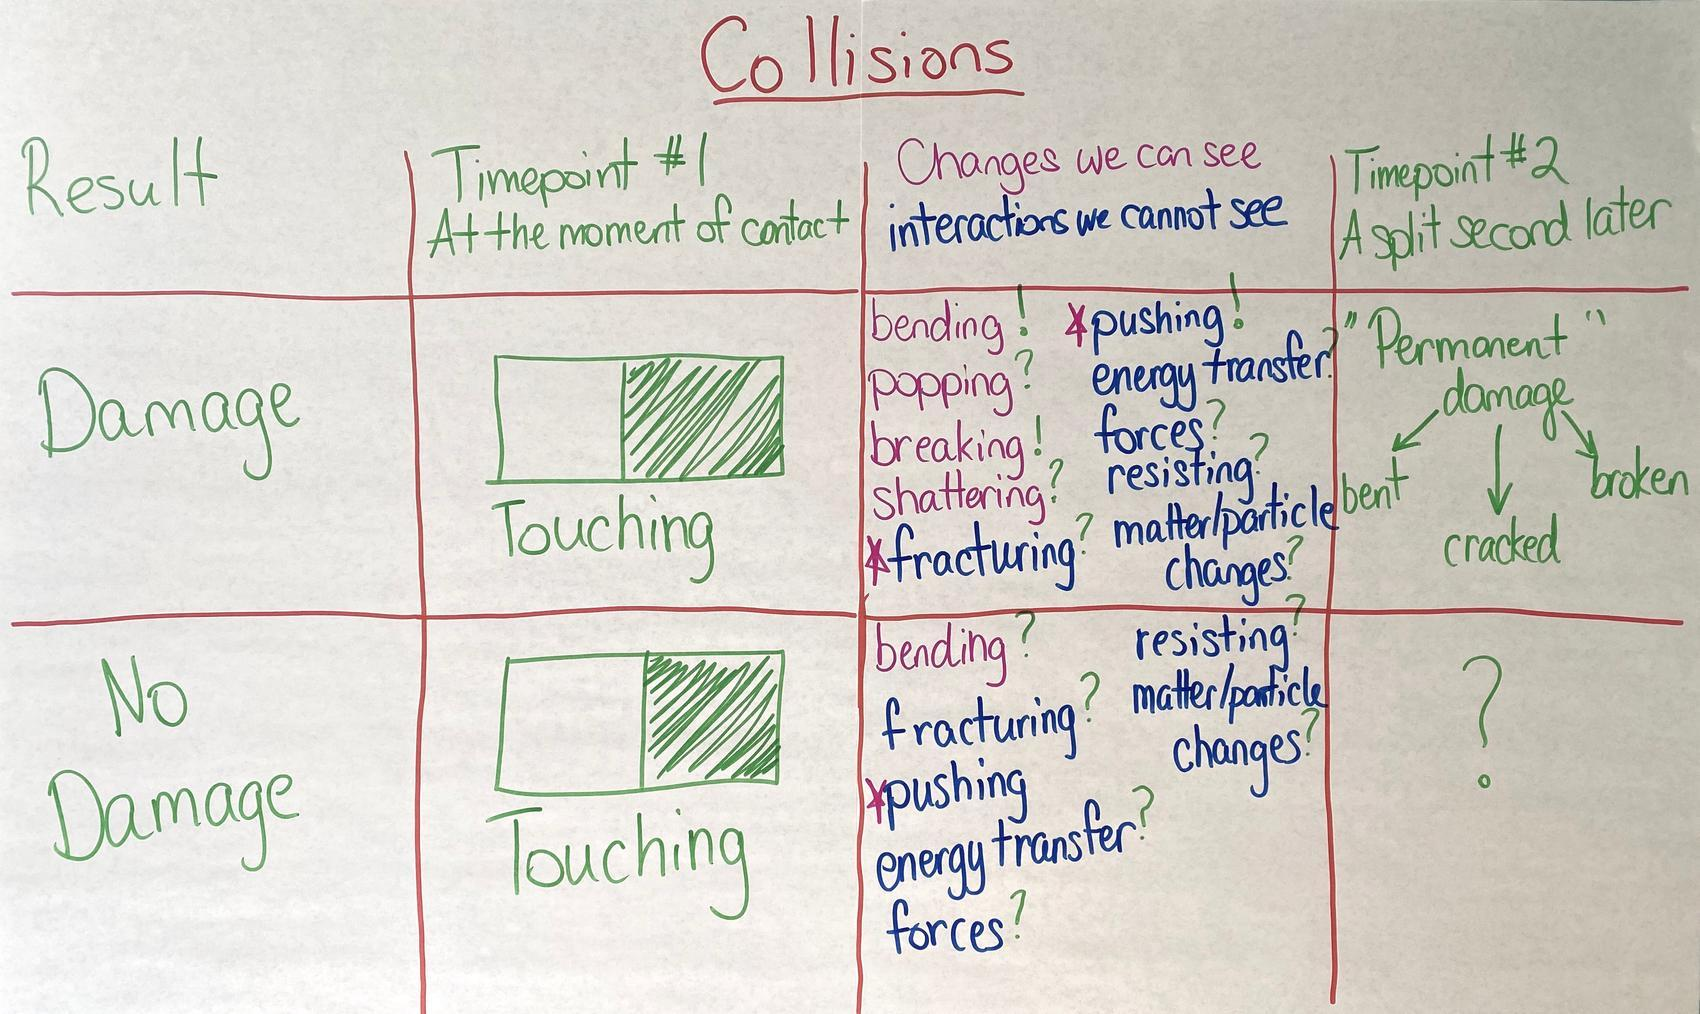 Collisions
Result
Timepoint #1
At the moment of contact
Changes we can see
interactions we cannot see
Timepoint #2
A split second later
Damage
Touching
bending!
popping?
breaking!
shattering?
*fracturing?
*pushing!
energy transfer?
forces?
resisting?
matter/particle
changes?
"Permanent"
damage
bent
cracked
broken
No
Damage
Touching
bending?
fracturing?
*pushing
energy transfer?
forces?
resisting?
matter/particle
changes?
?